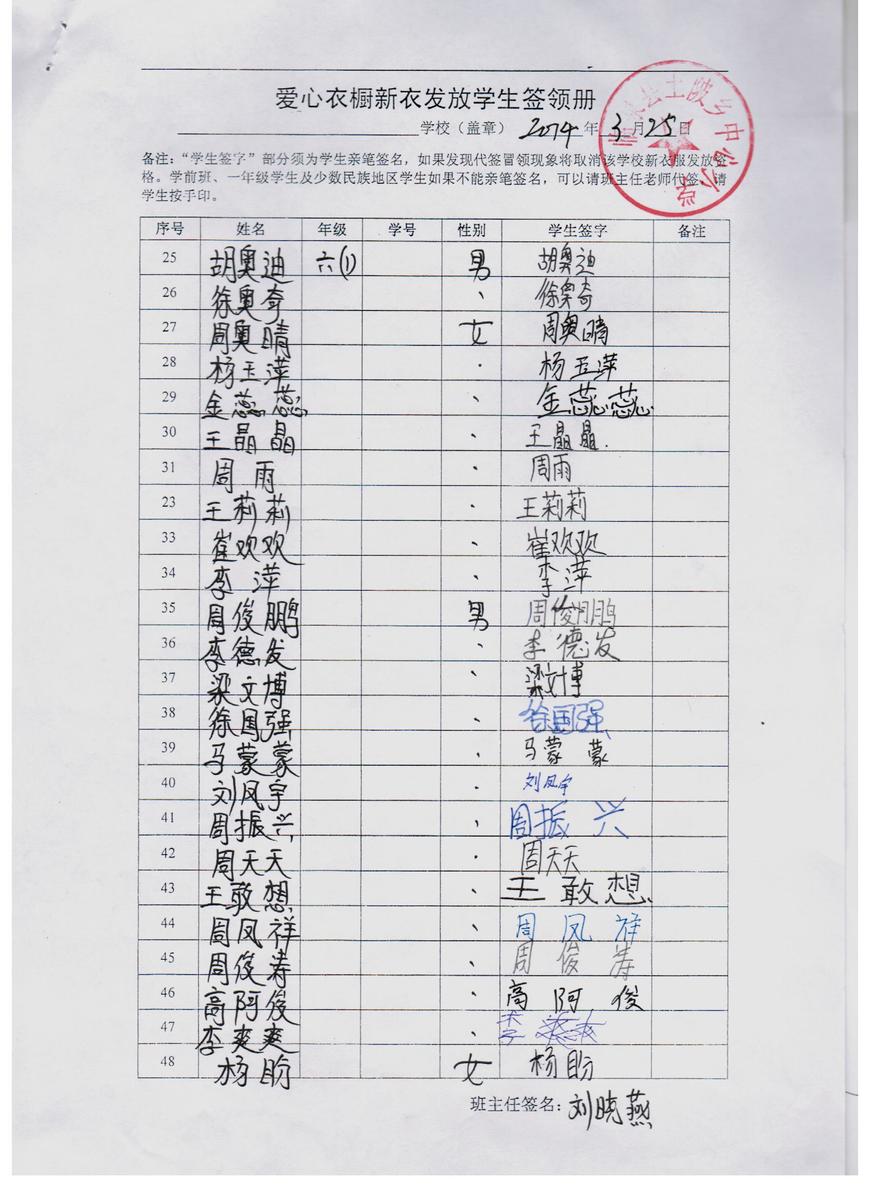 爱心衣橱新衣发放学生签领册
学校（盖章） 2014年3月25日
土陂乡中心小学
备注：“学生签字”部分须为学生亲笔签名，如果发现代签冒领现象将取消该学校新衣服发放资
格。学前班、一年级学生及少数民族地区学生如果不能亲笔签名，可以请班主任老师代签，请
学生按手印。
序号 姓名 年级 学号 性别 学生签字 备注
25 胡奥迪 六(1) 男 胡奥迪
26 徐奥奇 、 徐奥奇
27 周奥晴 女 周奥晴
28 杨玉萍 、 杨玉萍
29 金蕊蕊 、 金蕊蕊
30 王晶晶 、 王晶晶.
31 周雨 、 周雨
23 王莉莉 、 王莉莉
33 崔欢欢 、 崔欢欢
34 李萍 、 李萍
35 周俊鹏 男 周俊鹏
36 李德发 、 李德发
37 梁文博 、 梁文博
38 徐国强 、 徐国强
39 马蒙蒙 、 马蒙蒙
40 刘凤宇 、 刘凤宇
41 周振兴 、 周振兴
42 周天天 、 周天天
43 王敢想 、 王敢想
44 周凤祥 、 周凤祥
45 周俊涛 、 周俊涛
46 高阿俊 、 高阿俊
47 李爽爽 、 李爽爽
48 杨盼 女 杨盼
班主任签名：刘晓燕